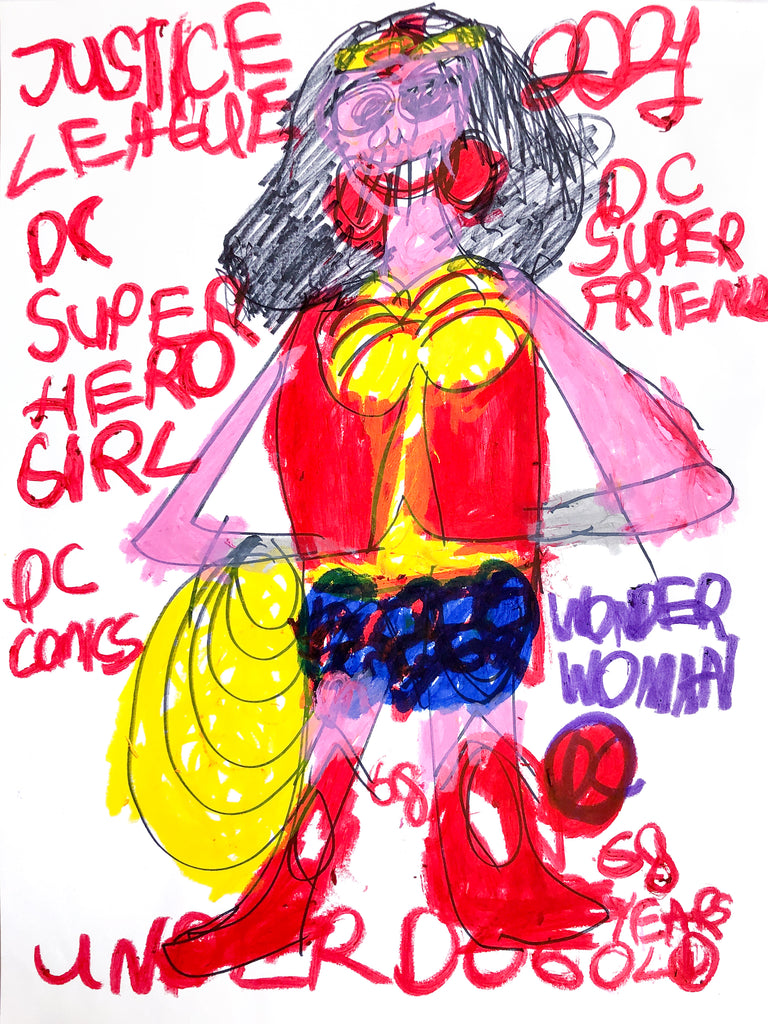 JUSTICE
LEAGUE
DC
SUPER
HERO
GIRL
DC
COMICS
DC
SUPER
FRIEND
WONDER
WOMAN
DC
68
68
YEARS
OLD
UNDERDOG